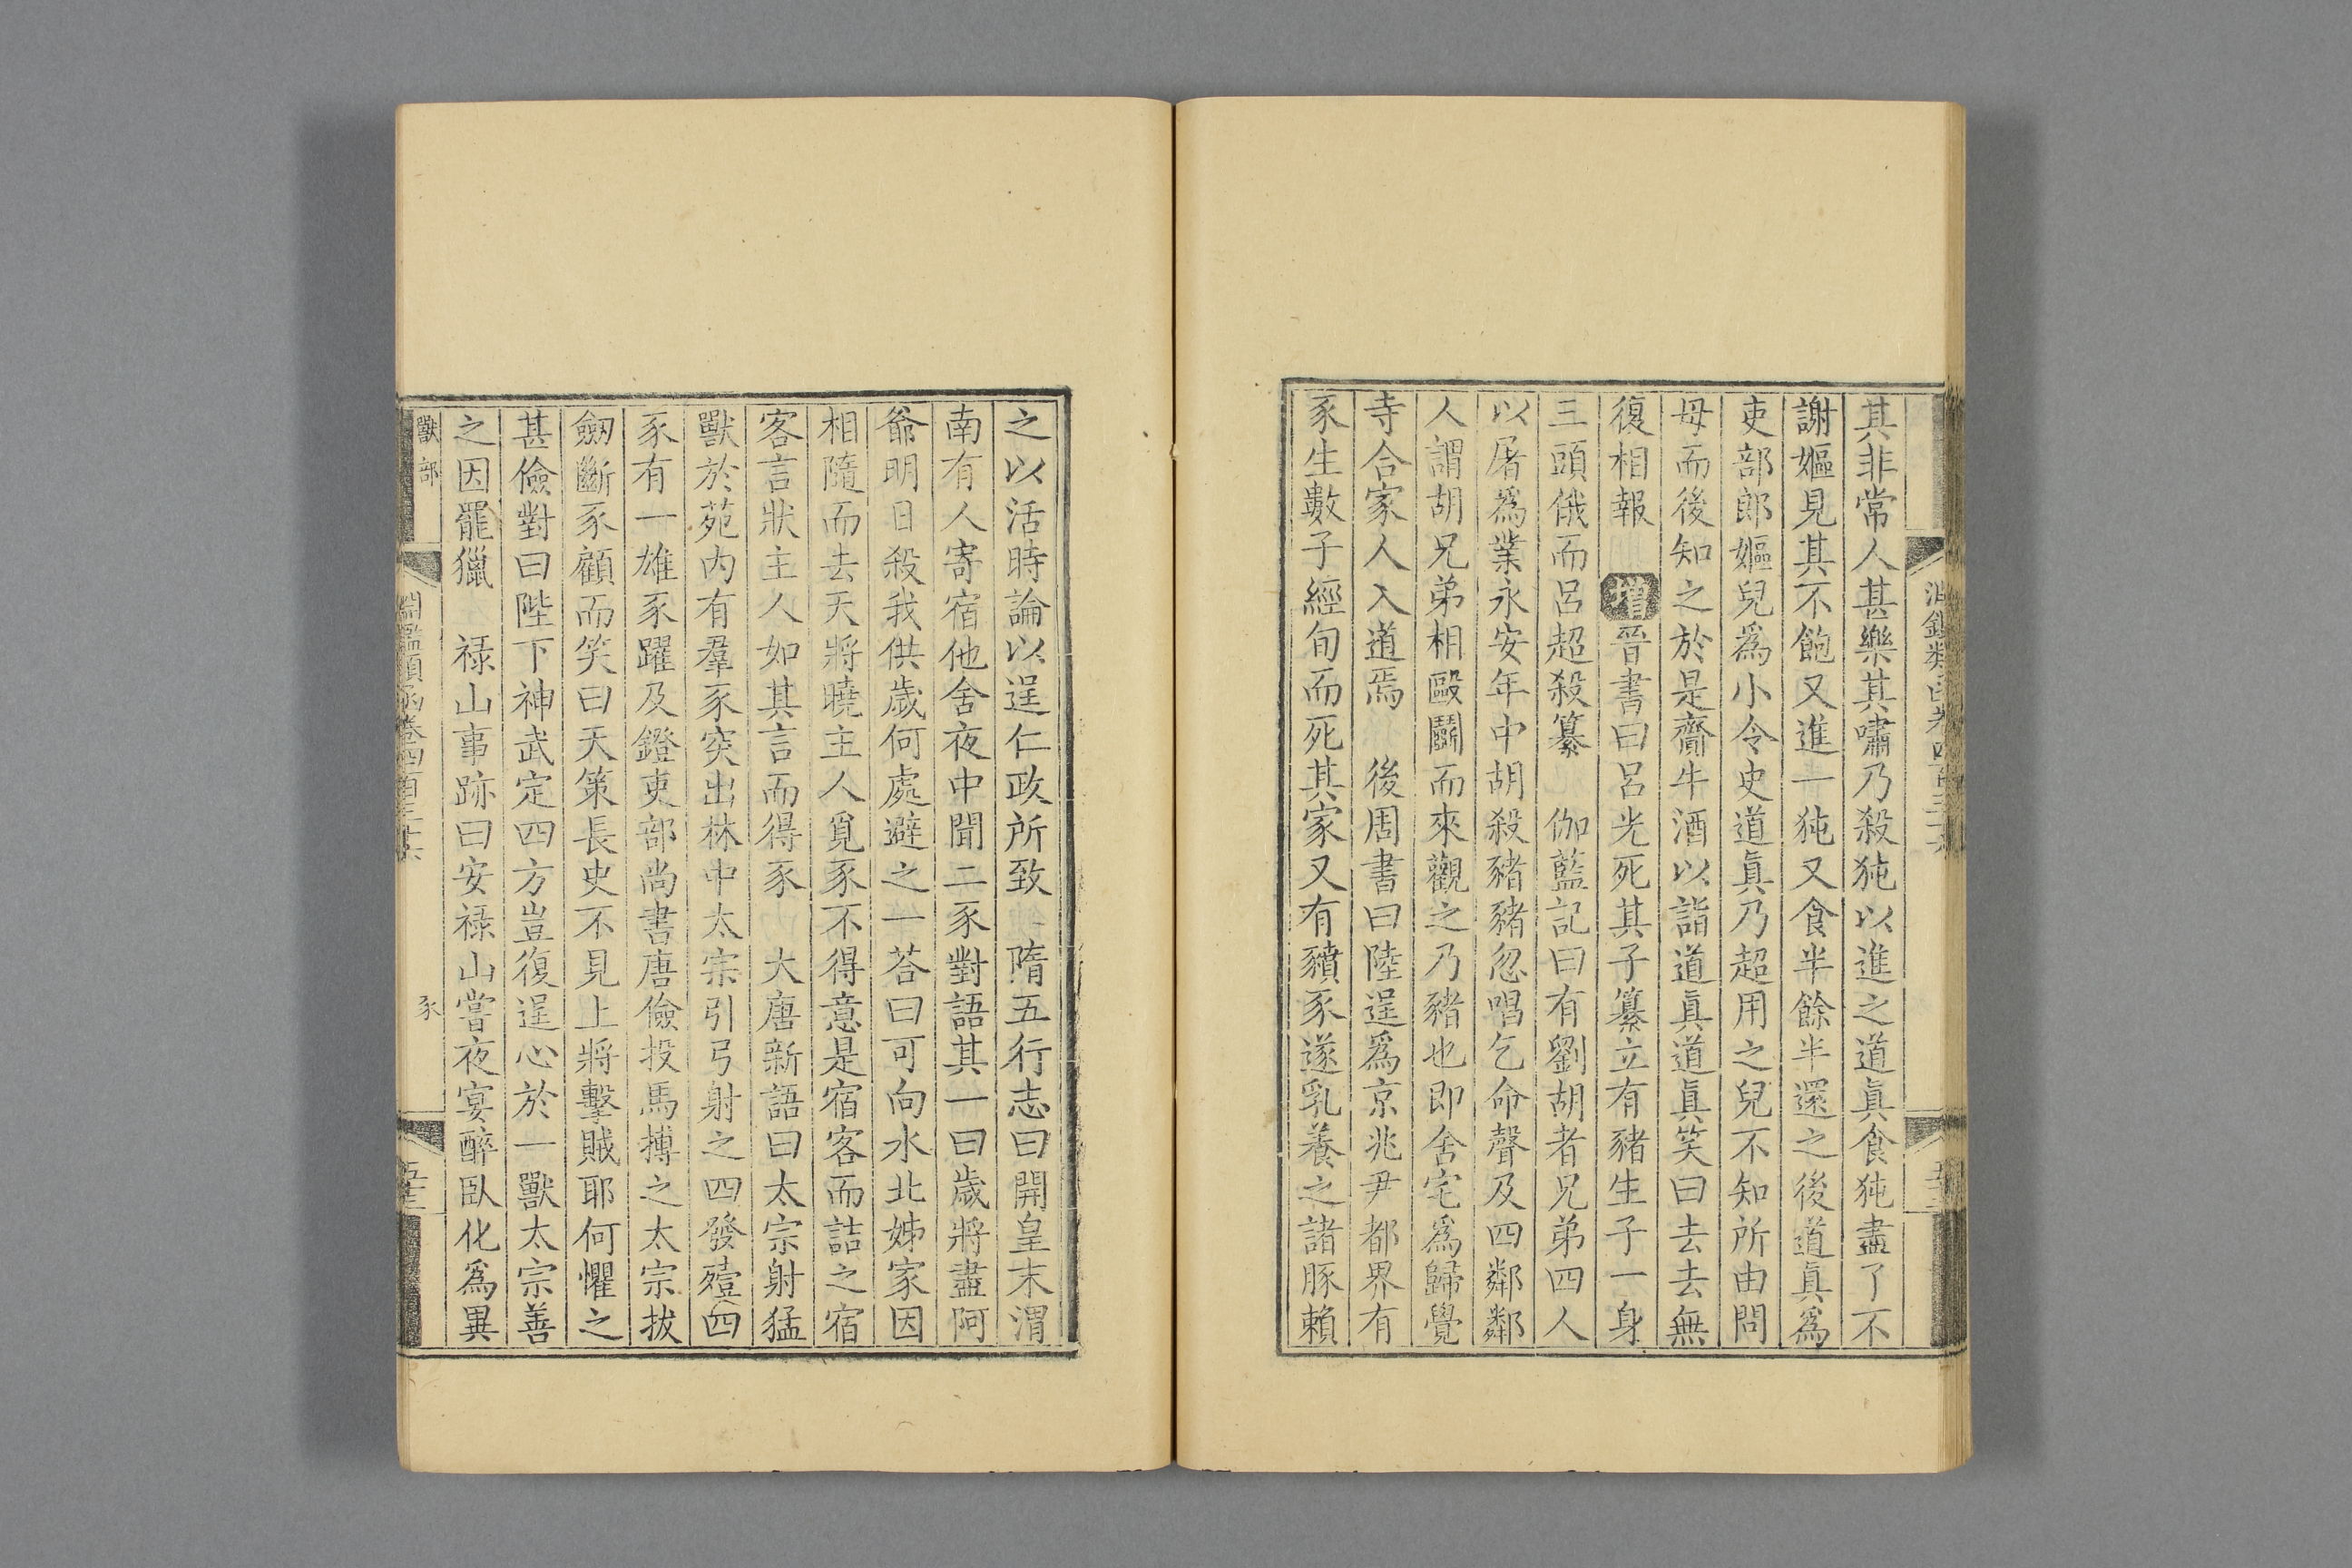 其非常人甚樂其嘯乃殺㹠以進之道眞食㹠盡了不
謝嫗見其不飽又進一㹠又食半餘半還之後道眞爲
吏部郎嫗兒爲小令史道眞乃超用之兒不知所由問
母而後知之於是齎牛酒以詣道眞道眞笑曰去去無
復相報 增 晉書曰呂光死其子纂立有豬生子一身
三頭俄而呂超殺纂 伽藍記曰有劉胡者兄弟四人
以屠爲業永安年中胡殺豬豬忽唱乞命聲及四鄰鄰
人謂胡兄弟相毆鬬而來觀之乃豬也即舍宅爲歸覺
寺合家人入道焉 後周書曰陸逞爲京兆尹都界有
豕生數子經旬而死其家又有豶豕遂乳養之諸豚賴
之以活時論以逞仁政所致 隋五行志曰開皇末渭
南有人寄宿他舍夜中聞二豕對語其一曰歲將盡阿
爺明日殺我供歲何處避之一荅曰可向水北姊家因
相隨而去天將曉主人覓豕不得意是宿客而詰之宿
客言狀主人如其言而得豕 大唐新語曰太宗射猛
獸於苑内有羣豕突出林中太宗引弓射之四發殪四
豕有一雄豕躍及鐙吏部尚書唐儉投馬搏之太宗拔
劒斷豕顧而笑曰天策長史不見上將擊賊耶何懼之
甚儉對曰陛下神武定四方豈復逞心於一獸太宗善
之因罷獵 禄山事跡曰安禄山嘗夜宴醉臥化爲異
獸部 淵鑑類函卷四百三十六 豕